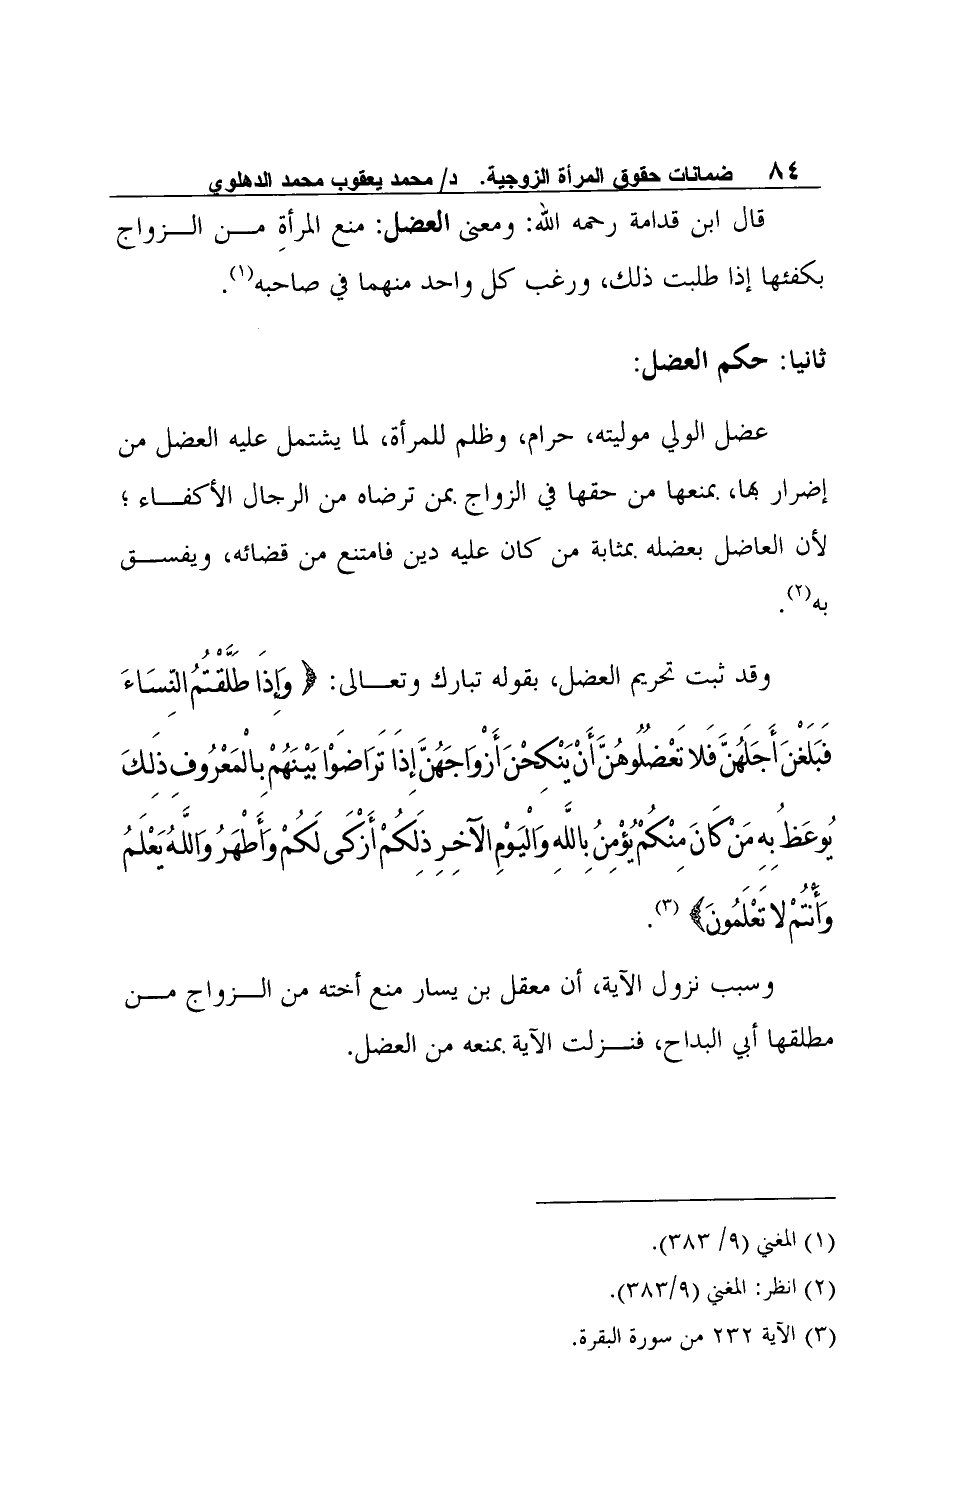 ٨٤ ضمانات حقوق المرأة الزوجية. د/ محمد يعقوب محمد الدهلوي
قال ابن قدامة رحمه الله: ومعنى العضل: منع المرأةِ مـن الـزواج
بكفئها إذا طلبت ذلك، ورغب كل واحد منهما في صاحبه(١).
ثانيا: حكم العضل:
عضل الولي موليته، حرام، وظلم للمرأة، لما يشتمل عليه العضل من
إضرار بها، بمنعها من حقها في الزواج بمن ترضاه من الرجال الأكفـاء ؛
لأن العاضل بعضله بمثابة من كان عليه دين فامتنع من قضائه، ويفسـق
به(٢).
وقد ثبت تحريم العضل، بقوله تبارك وتعـالى: ﴿ وَإِذَا طَلَّقْتُمُ النِّسَاءَ
فَبَلَغْنَ أَجَلَهُنَّ فَلا تَعْضُلُوهُنَّ أَنْ يَنْكِحْنَ أَزْوَاجَهُنَّ إِذَا تَرَاضَوْا بَيْنَهُمْ بِالْمَعْرُوفِ ذَلِكَ
يُوعَظُ بِهِ مَنْ كَانَ مِنْكُمْ يُؤْمِنُ بِاللَّهِ وَالْيَوْمِ الْآخِرِ ذَلِكُمْ أَزْكَى لَكُمْ وَأَطْهَرُ وَاللَّهُ يَعْلَمُ
وَأَنْتُمْ لا تَعْلَمُونَ﴾ (٣).
وسبب نزول الآية، أن معقل بن يسار منع أخته من الـزواج مـن
مطلقها أبي البداح، فنـزلت الآية بمنعه من العضل.
(١) المغني (٩/ ٣٨٣).
(٢) انظر: المغني (٣٨٣/٩).
(٣) الآية ٢٣٢ من سورة البقرة.